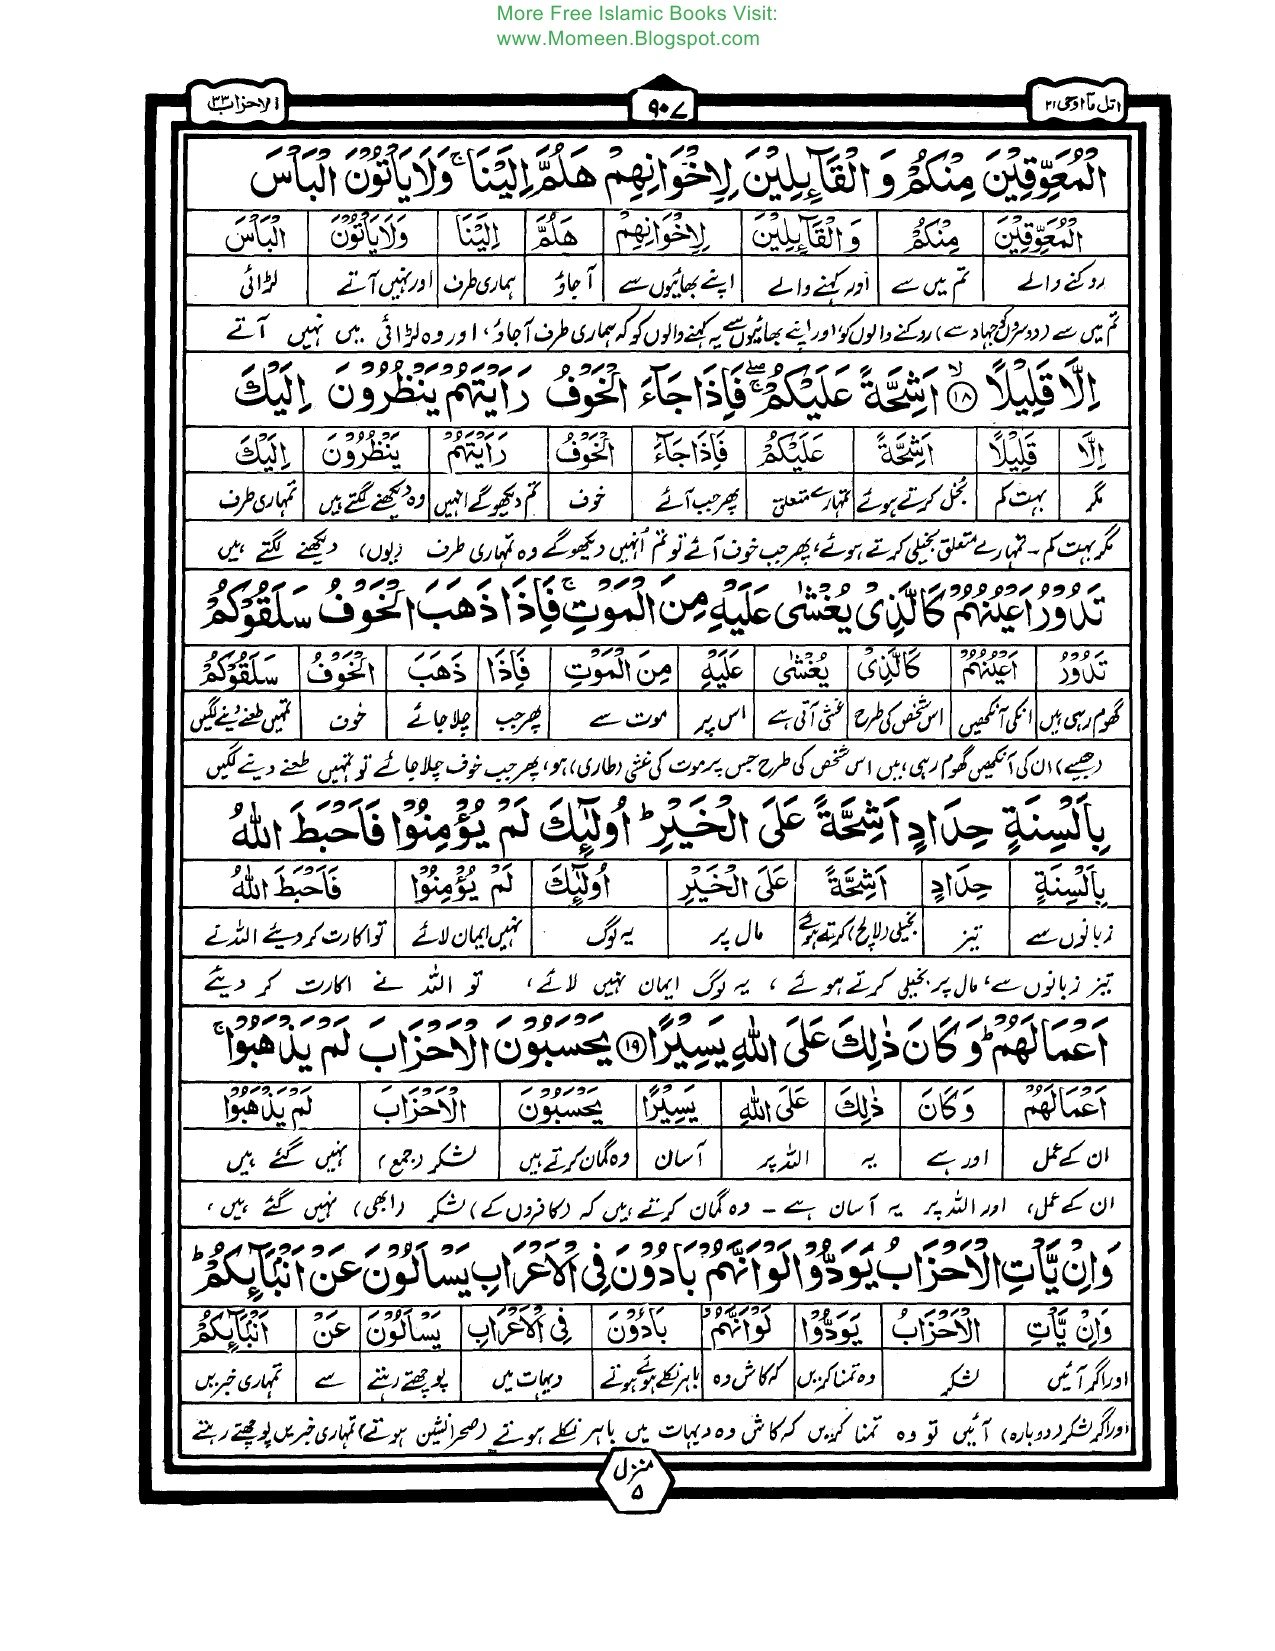 More Free Islamic Books Visit:
www.Momeen.Blogspot.com
اتل مآ اوحی ۲۱
۹۰۷
الاحزاب ۳۳
الْمُعَوِّقِيْنَ مِنْكُمْ وَ الْقَآئِلِيْنَ لِاِخْوَانِهِمْ هَلُمَّ اِلَيْنَا ۚ وَلَا يَاْتُوْنَ الْبَاْسَ
الْمُعَوِّقِيْنَ مِنْكُمْ وَ الْقَآئِلِيْنَ لِاِخْوَانِهِمْ هَلُمَّ اِلَيْنَا وَلَا يَاْتُوْنَ الْبَاْسَ
روکنے والے تم میں سے اور کہنے والے اپنے بھائیوں سے آجاؤ ہماری طرف اور نہیں آتے لڑائی
تم میں سے (دوسروں کو جہاد سے) روکنے والوں کو، اور اپنے بھائیوں سے یہ کہنے والوں کو کہ ہماری طرف آجاؤ، اور وہ لڑائی میں نہیں آتے
اِلَّا قَلِيْلًا ۙ ۱۸ اَشِحَّةً عَلَيْكُمْ ۚۖ فَاِذَا جَآءَ الْخَوْفُ رَاَيْتَهُمْ يَنْظُرُوْنَ اِلَيْكَ
اِلَّا قَلِيْلًا اَشِحَّةً عَلَيْكُمْ فَاِذَا جَآءَ الْخَوْفُ رَاَيْتَهُمْ يَنْظُرُوْنَ اِلَيْكَ
مگر بہت کم بخل کرتے ہوئے تمہارے متعلق پھر جب آئے خوف تم دیکھو گے انہیں وہ دیکھنے لگتے ہیں تمہاری طرف
مگر بہت کم۔ تمہارے متعلق بخیلی کرتے ہوئے، پھر جب خوف آئے تو تم اُنہیں دیکھو گے وہ تمہاری طرف (یوں) دیکھنے لگتے ہیں
تَدُوْرُ اَعْيُنُهُمْ كَالَّذِيْ يُغْشٰى عَلَيْهِ مِنَ الْمَوْتِ ۚ فَاِذَا ذَهَبَ الْخَوْفُ سَلَقُوْكُمْ
تَدُوْرُ اَعْيُنُهُمْ كَالَّذِيْ يُغْشٰى عَلَيْهِ مِنَ الْمَوْتِ فَاِذَا ذَهَبَ الْخَوْفُ سَلَقُوْكُمْ
گھوم رہی ہیں انکی آنکھیں اس شخص کی طرح غشی آتی ہے اس پر موت سے پھر جب چلا جائے خوف تمہیں طعنے دینے لگیں
(جیسے) ان کی آنکھیں گھوم رہی ہیں اس شخص کی طرح جس پر موت کی غشی (طاری) ہو، پھر جب خوف چلا جائے تو تمہیں طعنے دینے لگیں
بِاَلْسِنَةٍ حِدَادٍ اَشِحَّةً عَلَى الْخَيْرِ ؕ اُولٰٓئِكَ لَمْ يُؤْمِنُوْا فَاَحْبَطَ اللّٰهُ
بِاَلْسِنَةٍ حِدَادٍ اَشِحَّةً عَلَى الْخَيْرِ اُولٰٓئِكَ لَمْ يُؤْمِنُوْا فَاَحْبَطَ اللّٰهُ
زبانوں سے تیز بخیلی (لالچ) کرتے ہوئے مال پر یہ لوگ نہیں ایمان لائے تو اکارت کر دیئے اللہ نے
تیز زبانوں سے، مال پر بخیلی کرتے ہوئے، یہ لوگ ایمان نہیں لائے، تو اللہ نے اکارت کر دیئے
اَعْمَالَهُمْ ؕ وَكَانَ ذٰلِكَ عَلَى اللّٰهِ يَسِيْرًا ۱۹ يَحْسَبُوْنَ الْاَحْزَابَ لَمْ يَذْهَبُوْا ۚ
اَعْمَالَهُمْ وَكَانَ ذٰلِكَ عَلَى اللّٰهِ يَسِيْرًا يَحْسَبُوْنَ الْاَحْزَابَ لَمْ يَذْهَبُوْا
ان کے عمل اور ہے یہ اللہ پر آسان وہ گمان کرتے ہیں لشکر (جمع) نہیں گئے ہیں
ان کے عمل، اور اللہ پر یہ آسان ہے۔ وہ گمان کرتے ہیں کہ (کافروں کے) لشکر (ابھی) نہیں گئے ہیں،
وَاِنْ يَّاْتِ الْاَحْزَابُ يَوَدُّوْا لَوْ اَنَّهُمْ بَادُوْنَ فِي الْاَعْرَابِ يَسْاَلُوْنَ عَنْ اَنْبَآئِكُمْ ؕ
وَاِنْ يَّاْتِ الْاَحْزَابُ يَوَدُّوْا لَوْ اَنَّهُمْ بَادُوْنَ فِي الْاَعْرَابِ يَسْاَلُوْنَ عَنْ اَنْبَآئِكُمْ
اور اگر آئیں لشکر وہ تمنا کریں کہ کاش وہ باہر نکلے ہوئے ہوتے دیہات میں پوچھتے رہتے سے تمہاری خبریں
اور اگر لشکر (دوبارہ) آئیں تو وہ تمنا کریں کہ کاش وہ دیہات میں باہر نکلے ہوتے (صحرا نشین ہوتے) تمہاری خبریں پوچھتے رہتے
منزل
۵